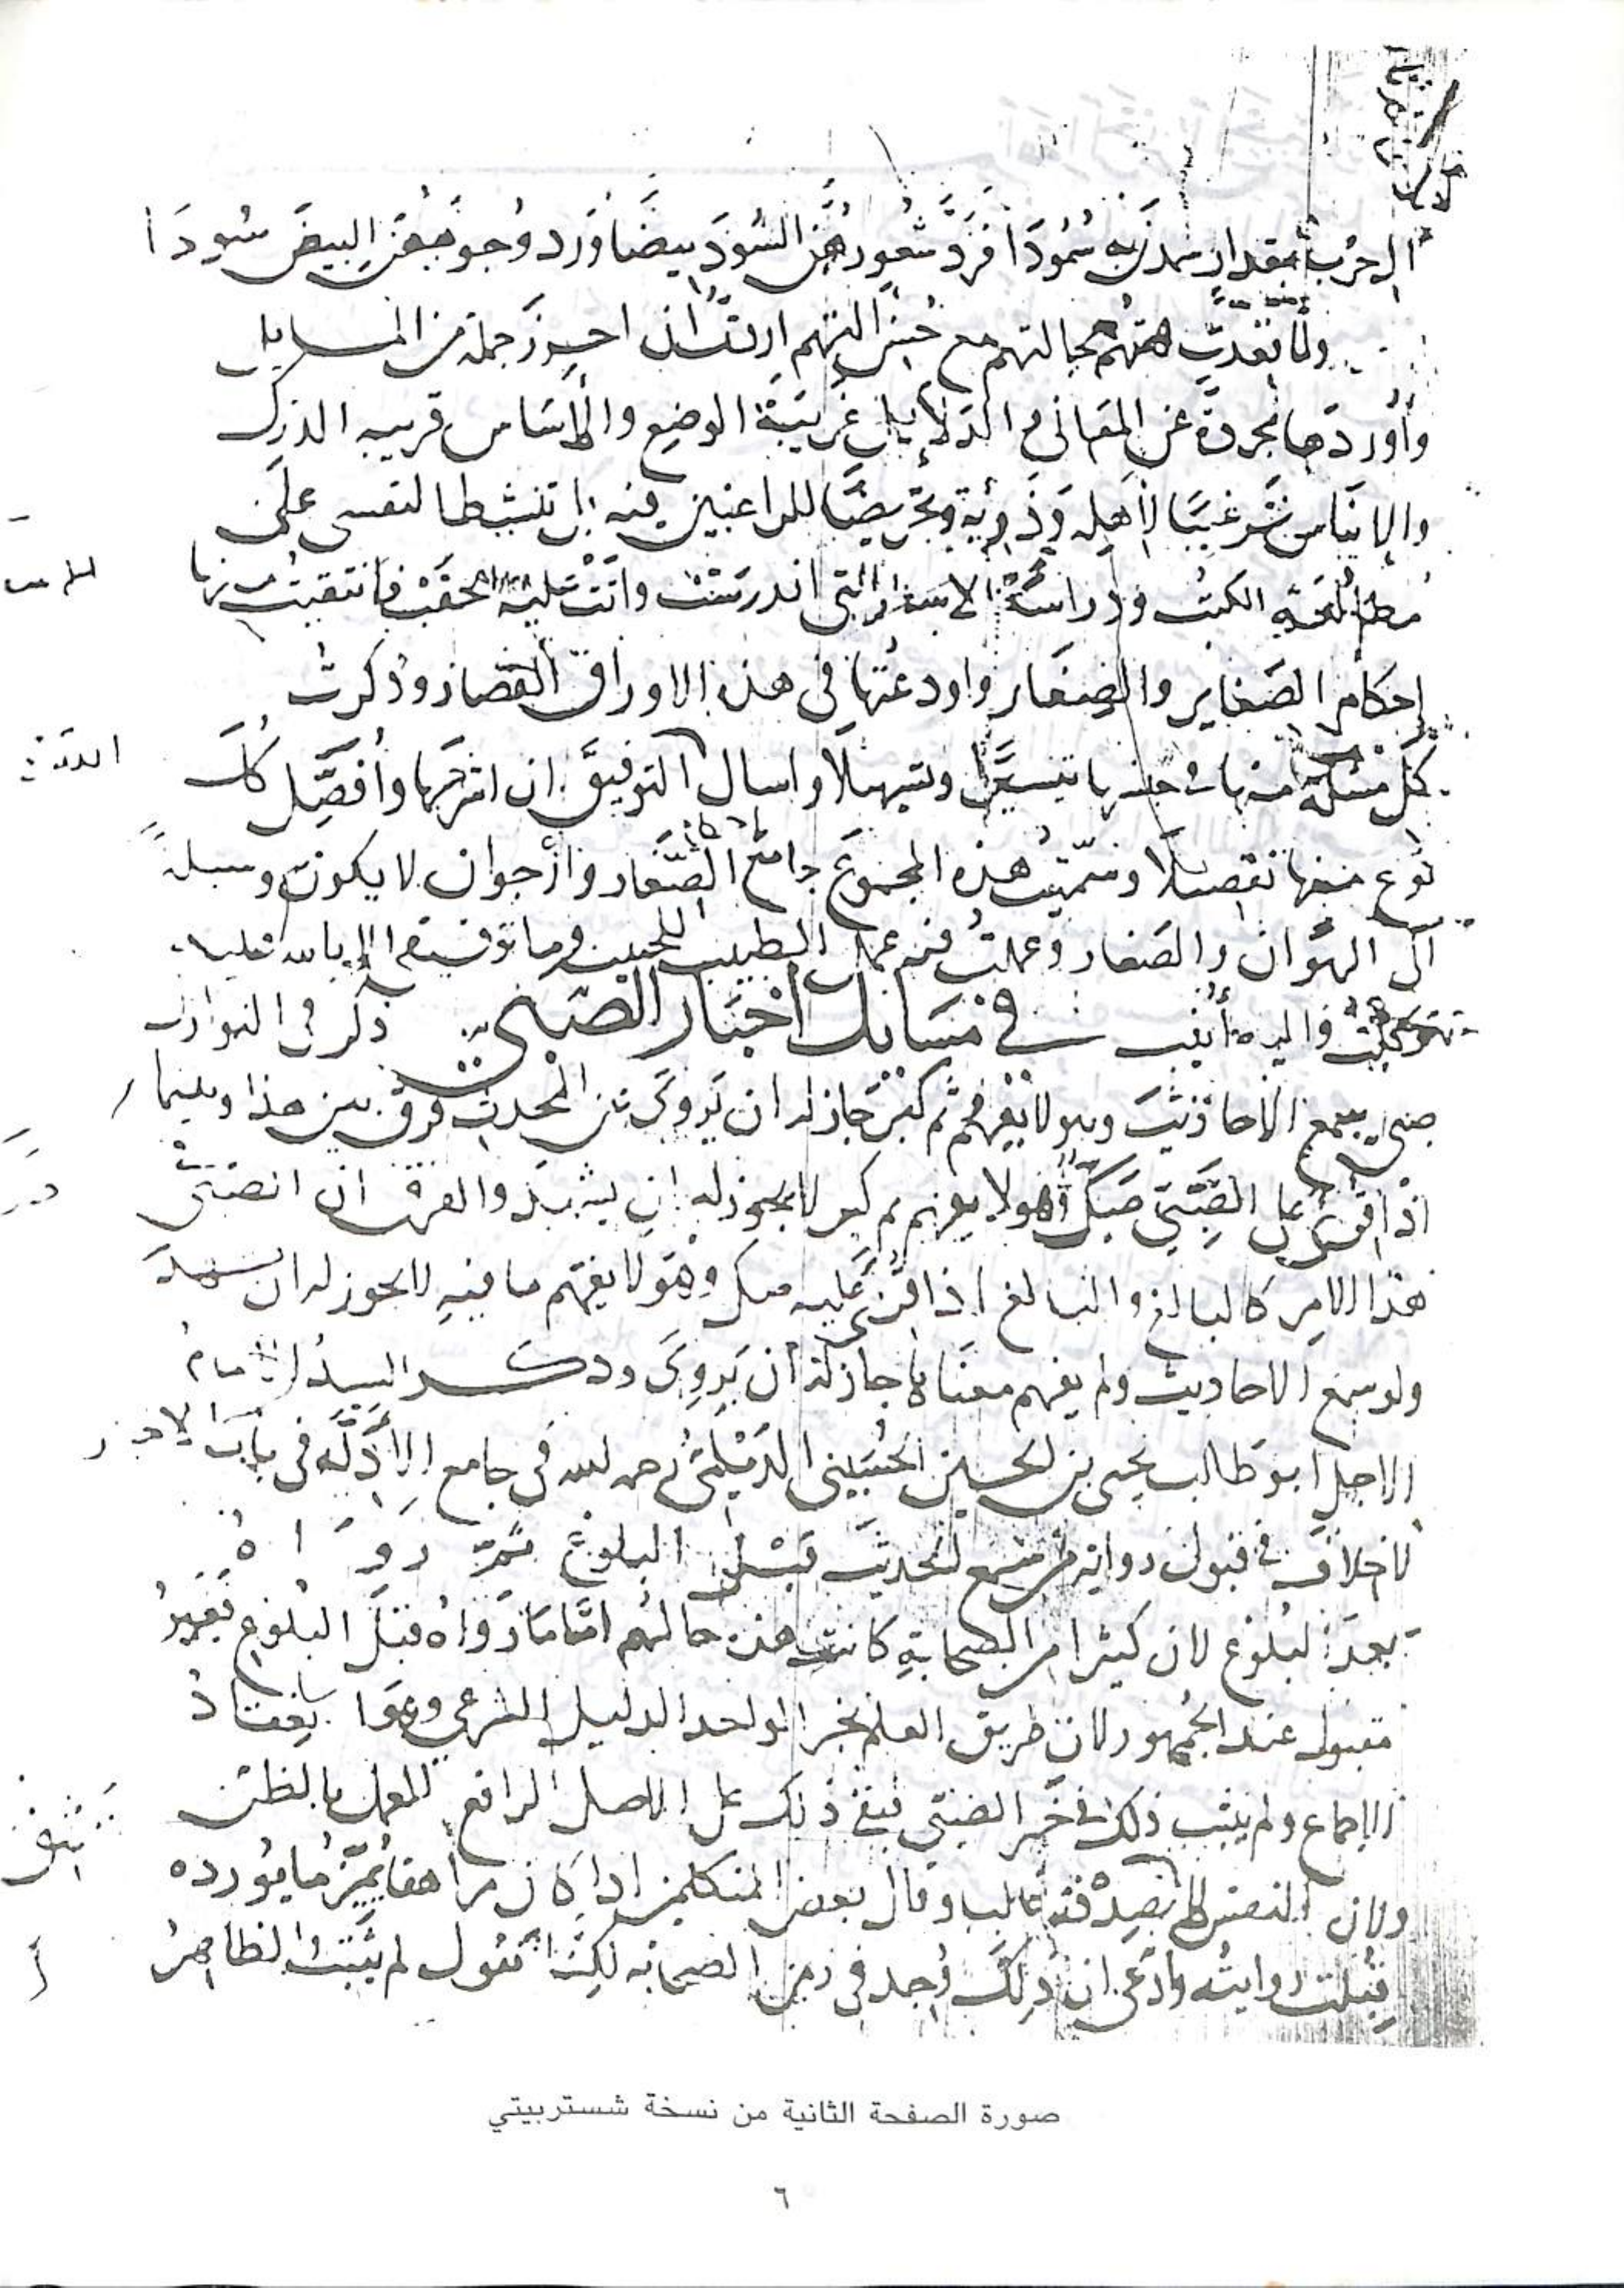 الحرب بمقدار سمدن به سمودا فرد شعورهن السود بيضا ورد وجوههن البيض سودا
ولما تقدت همتهم مع ان احرز جملة من المسايل
وأوردها مجردة عن المعاني و الدلايل غريبة الوضع والاساس قريبه الدرك
والايناس ترغيبا لاهله وذويه وتحريضا للراغبين فيه بل تنشيطا لنفسي على
مطالعة الكتب ودراسة الاسفار التي اندرست واتت عليها الحقب فانتقيت منها
احكام الصغاير والصغار واودعتها في هذه الاوراق القصار وذكرت
كل مسئلة منها في جنسها تيسيرا وتسهيلا واسال التوفيق ان اشرحها وأفصل كل
نوع منها تفصيلا وسميت هذه المجموع جامع الصغار وأرجوا ان لا يكون وسيلة
الى الهوان والصغار وعملت فيه عمل الطبيب للحبيب وما توفيقي الا بالله عليه
توكلت واليه أنيب في مسايل اخبار الصبي ذكر في النوازل
صبي سمع الاحاديث وهو لا يفهم ثم كبر جاز له ان يروى عن المحدث فرق بين هذا وبينما
اذا قرئ على الصبي صك وهو لا يفهم ثم كبر لا يجوز له ان يشهد والفرق ان الصبي
هذا الامر كالبالغ والبالغ اذا قرئ عليه صك وهو لا يفهم ما فيه لا يجوز له ان يشهد
ولو سمع الاحاديث ولم يفهم معناها جاز له ان يروى وذكر السيد الامام
الاجل ابو طالب يحيى بن الحسين الحسيني الديلمي رحمه الله في جامع الادلة في باب الاخبار
لا خلاف في قبول رواية من سمع الحديث قبل البلوغ ثم رواه
بعد البلوغ لان كثيرا من الصحابة كانت هذه حالهم اما ما رواه قبل البلوغ فغير
مقبول عند الجمهور لان طريق العلم بخبر الواحد الدليل الشرعي وهو انعقاد
الاجماع ولم يثبت ذلك في خبر الصبي فبقي ذلك على الاصل الرافع للعمل بالظن
ولان النفس لا بصدقه غالبا وقال بعض المتكلمين اذا كان مراهقا يميز ما يورده
قبلت روايته وادعى ان ذلك وجد في زمن الصحابه لكنا نقول لم يثبت الظاهر
صورة الصفحة الثانية من نسخة شستربيتي
٦